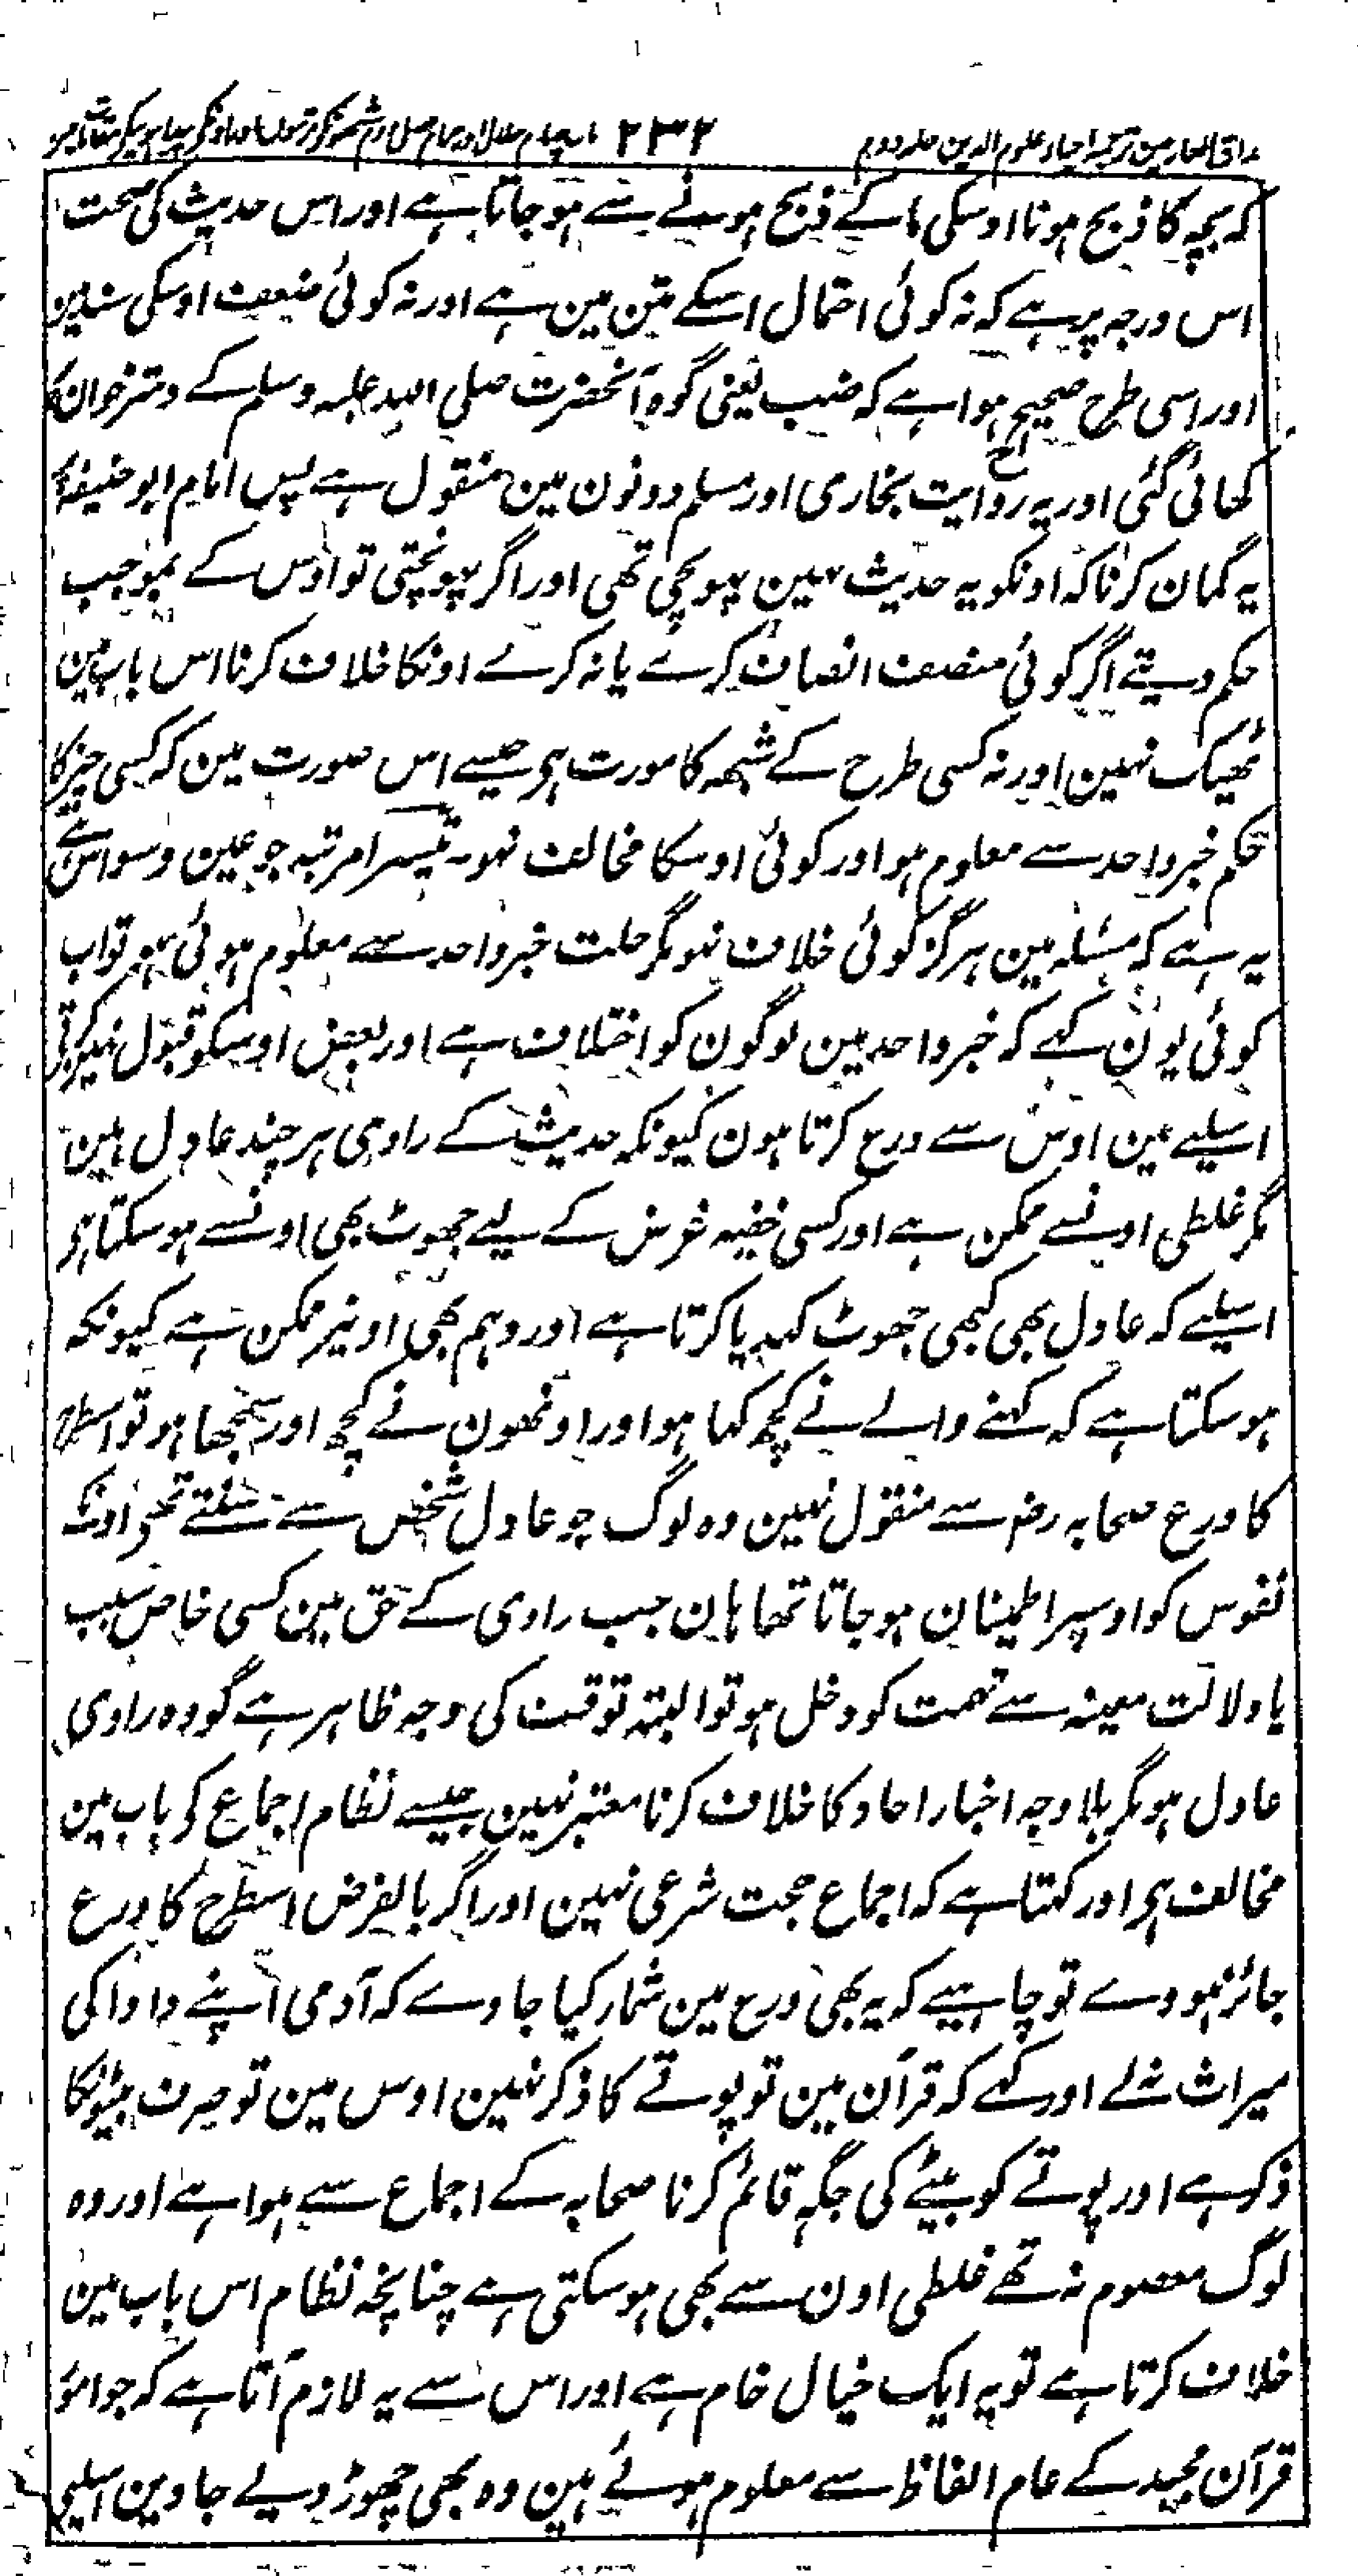 مذاق العارفین ترجمہ احیاء علوم الدین جلد دوم ۲۳۲ باب چہارم حلال اور حرام
کہ بچہ کا ذبح ہونا اوسکی ما کے ذبح ہونے سے ہو جاتا ہے اور اس حدیث کی صحت
اس درجہ پر ہے کہ نہ کوئی احتمال اسکے متن مین ہے اور نہ کوئی ضعف اوسکی سند مین
اور اسی طرح صحیح ہوا ہے کہ ضب یعنی گوہ آنحضرت صلی اللہ علیہ وسلم کے دسترخوان پر
کھائی گئی اور یہ روایت بخاری اور مسلم دونون مین منقول ہے پس امام ابو حنیفہ کا
یہ گمان کرنا کہ اونکو یہ حدیث نہین پہونچی تھی اور اگر پہونچتی تو اوس کے بموجب
حکم دیتے اگر کوئی منصف انصاف کرے یا نہ کرے اونکا خلاف کرنا اس باب مین
ٹھیک نہین اور نہ کسی طرح کے شبھہ کا مورث ہی جیسے اس صورت مین کہ کسی چیز کا
حکم خبر واحد سے معلوم ہو اور کوئی اوسکا مخالف نہو۔ تیسرا مرتبہ جو عین وسواس ہے
یہ ہے کہ مسئلہ مین ہرگز کوئی خلاف نہو مگر حلت خبر واحد سے معلوم ہوئی ہو تو اب
کوئی یون کہے کہ خبر واحد مین لوگون کو اختلاف ہے اور بعض اوسکو قبول نہین کرتے
اسلیے مین اوس سے ورع کرتا ہون کیونکہ حدیث کے راوی ہر چند عادل ہین
مگر غلطی اونسے ممکن ہے اور کسی خفیہ غرض کے لیے جھوٹ بھی اونسے ہو سکتا ہی
اسلیے کہ عادل بھی کبھی جھوٹ کہدیا کرتا ہے اور وہم بھی اونپر ممکن ہے کیونکہ
ہو سکتا ہے کہ کہنے والے نے کچھ کہا ہو اور اونھون نے کچھ اور سمجھا ہو تو اسطرح
کا ورع صحابہ رضہ سے منقول نہین وہ لوگ جو عادل شخص سے سنتے تھے اونکے
نفوس کو اوسپر اطمینان ہو جاتا تھا ہان جب راوی کے حق مین کسی خاص سبب
یا دلالت معینہ سے تہمت کو دخل ہو تو البتہ توقف کی وجہ ظاہر ہے گو وہ راوی
عادل ہو مگر بلا وجہ اخبار احاد کا خلاف کرنا معتبر نہین جیسے نظام اجماع کے باب مین
مخالف ہی اور کہتا ہے کہ اجماع حجت شرعی نہین اور اگر بالفرض اسطرح کا ورع
جائز ہووے تو چاہیے کہ یہ بھی ورع مین شمار کیا جاوے کہ آدمی اپنے دادا کی
میراث نہ لے اور کہے کہ قرآن مین تو پوتے کا ذکر نہین اوس مین تو صرف بیٹونکا
ذکر ہے اور پوتے کو بیٹے کی جگہ قائم کرنا صحابہ کے اجماع سے ہوا ہے اور وہ
لوگ معصوم نہ تھے غلطی اون سے بھی ہو سکتی ہے چنانچہ نظام اس باب مین
خلاف کرتا ہے تو یہ ایک خیال خام ہے اور اس سے یہ لازم آتا ہے کہ جو امور
قرآن مجید کے عام الفاظ سے معلوم ہوئے ہین وہ بھی چھوڑ دیے جاوین اسلیے